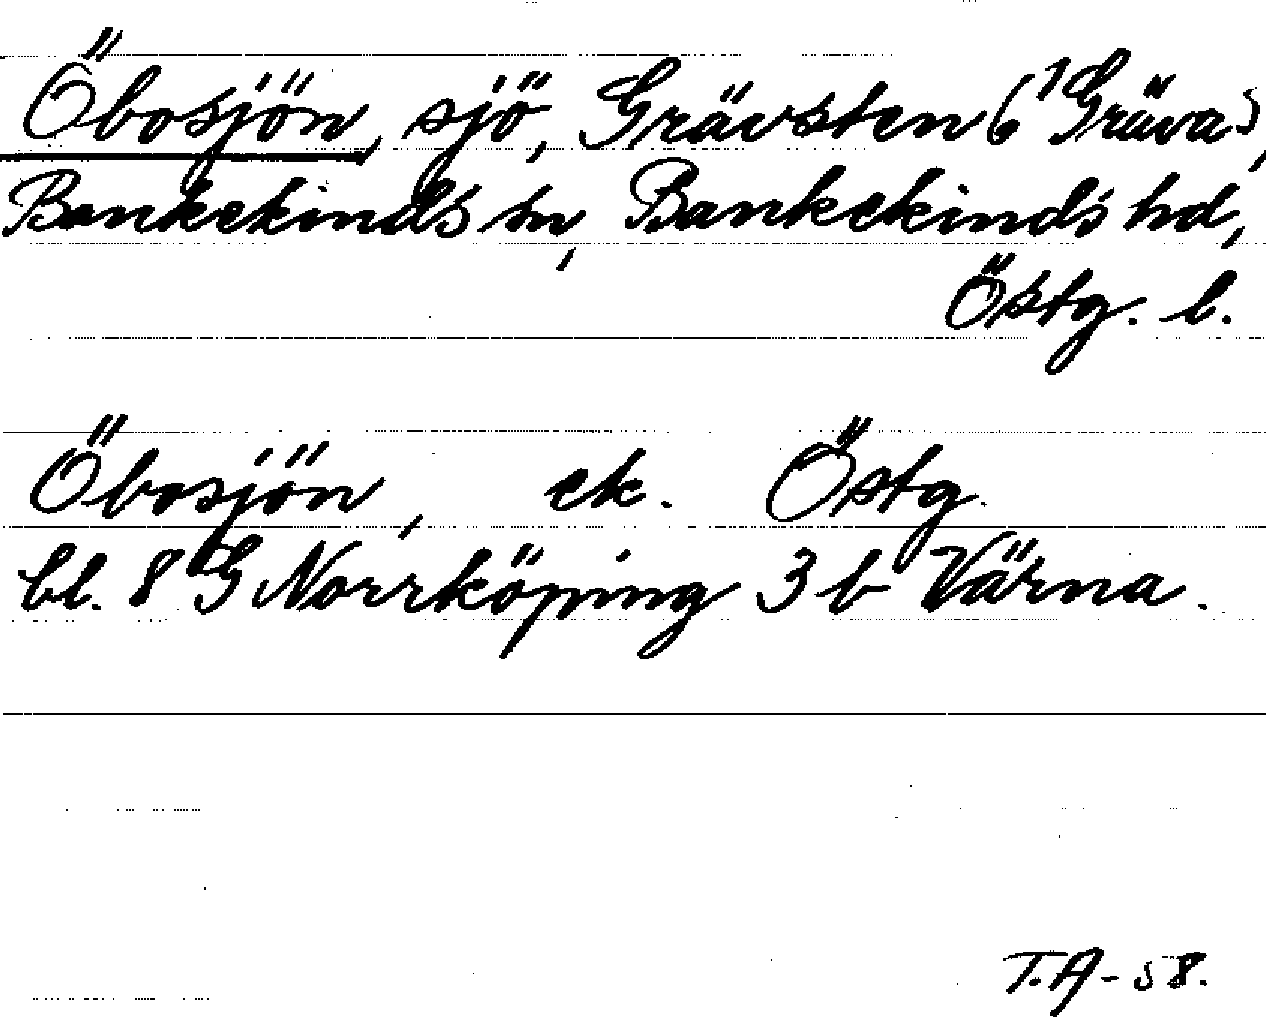 Öbosjön, sjö, Grävsten (¹Gräva),
Bankekinds sn, Bankekinds hd,
Östg. l.
Öbosjön, ek. Östg.
bl. 8 G Norrköping 3 b Värna.
T.A-58.